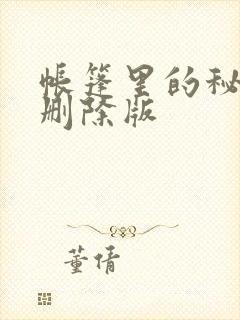 帐篷里的秘
删除版
董倩